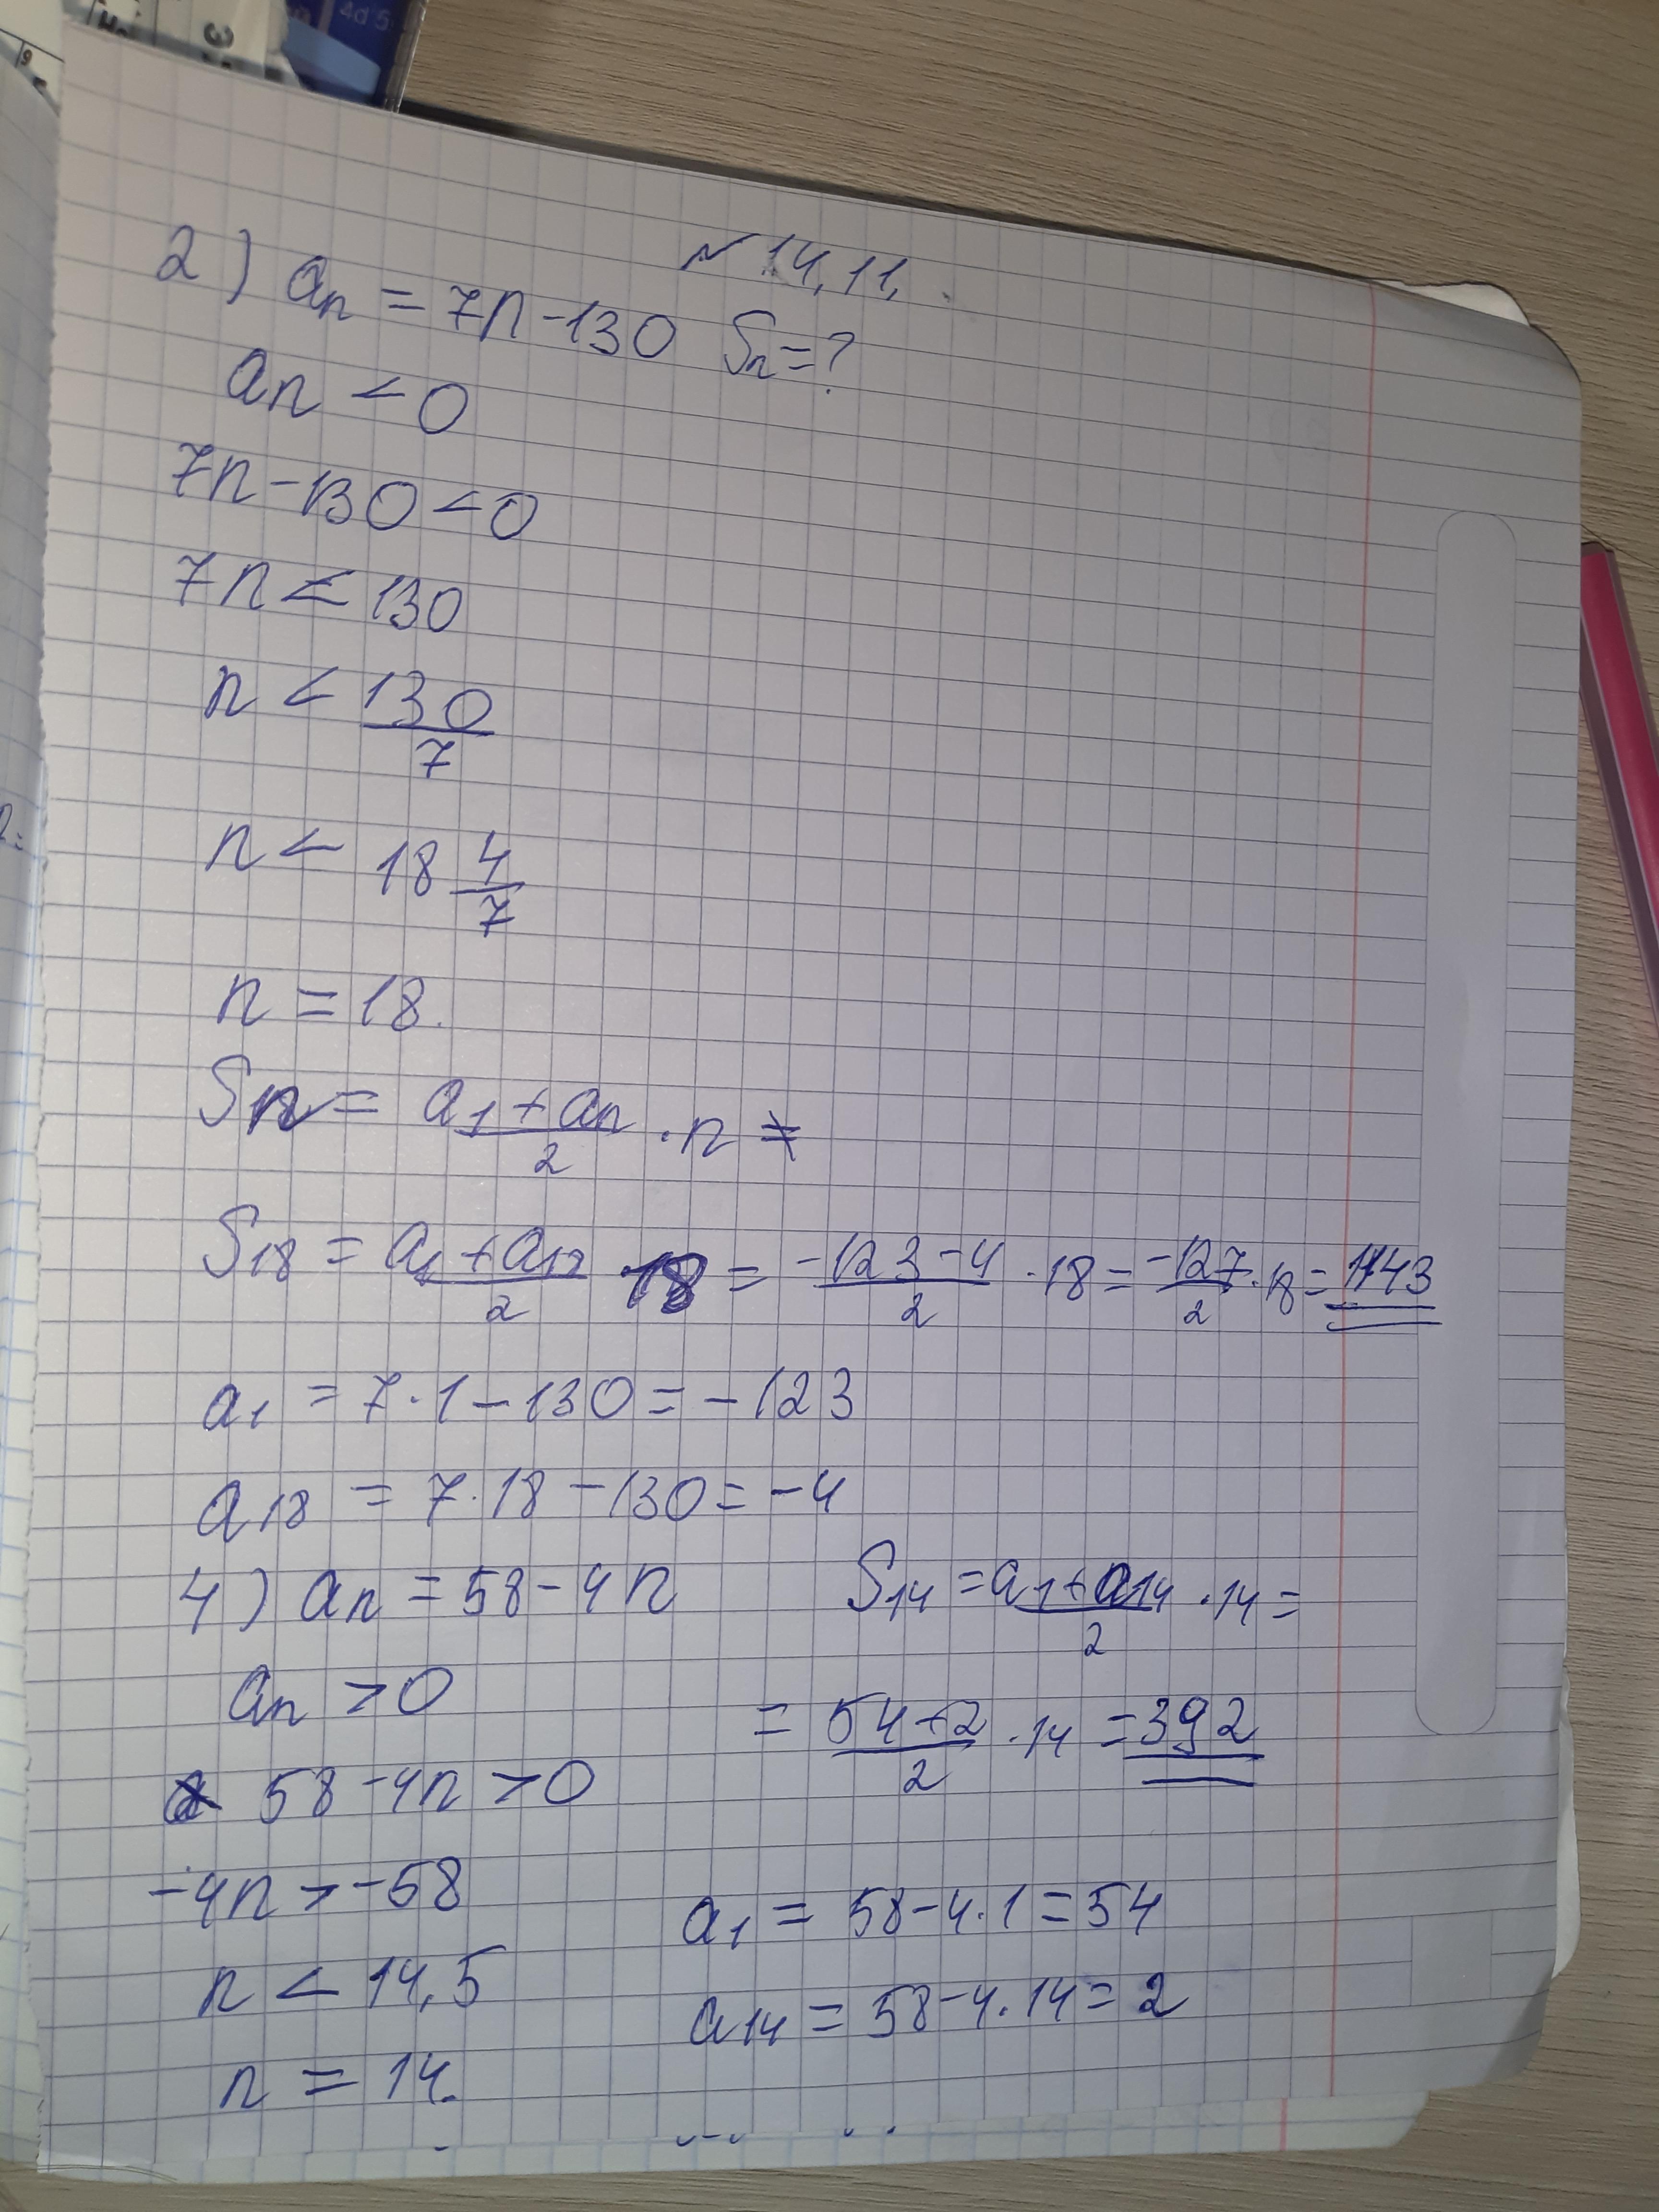 № 14.11.
2) an = 7n - 130 Sn = ?
an < 0
7n - 130 < 0
7n < 130
n < 130/7
n < 18 4/7
n = 18.
Sn = (a1 + an)/2 · n =
S18 = (a1 + a18)/2 · 18 = (-123 - 4)/2 · 18 = (-127)/2 · 18 = 1143
a1 = 7 · 1 - 130 = -123
a18 = 7 · 18 - 130 = -4
4) an = 58 - 4n
an > 0
58 - 4n > 0
-4n > -58
n < 14,5
n = 14.
S14 = (a1 + a14)/2 · 14 =
= (54 + 2)/2 · 14 = 392
a1 = 58 - 4 · 1 = 54
a14 = 58 - 4 · 14 = 2